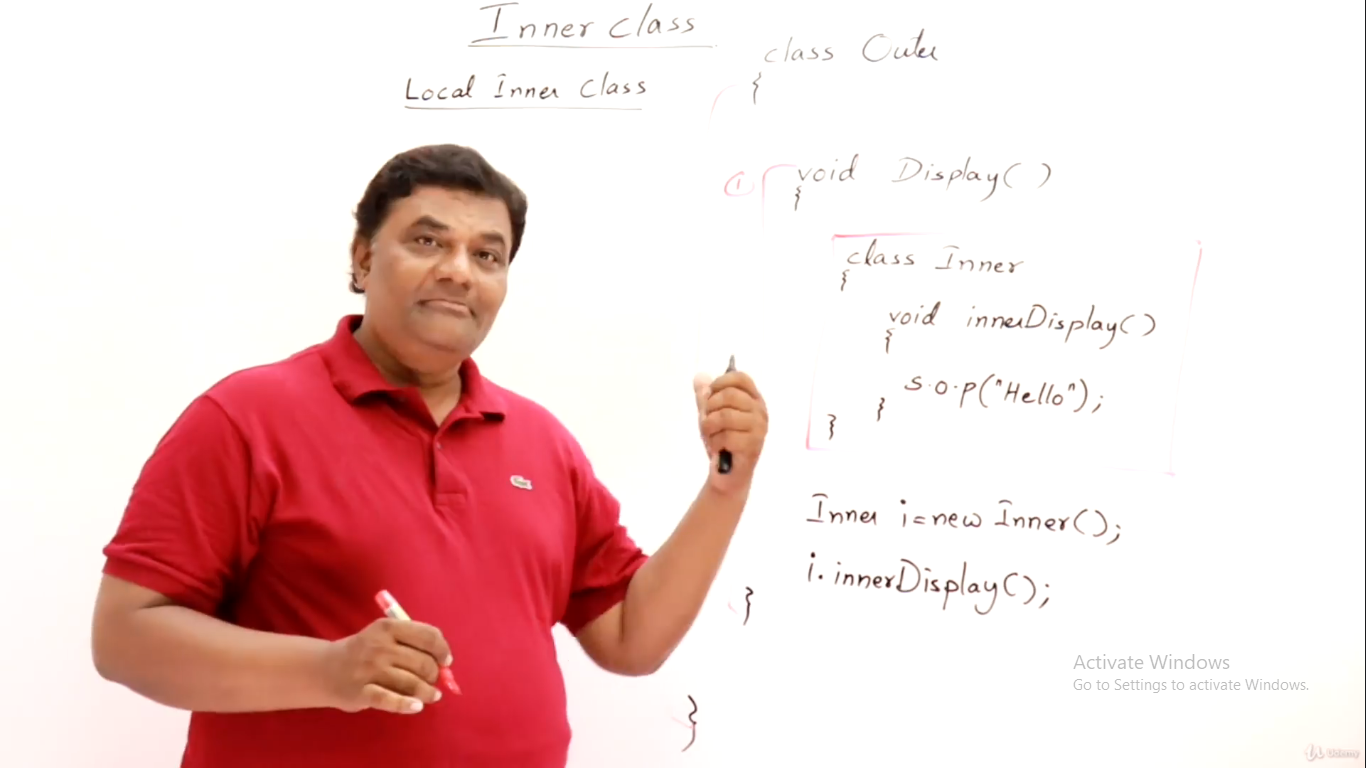 Inner class
Local Inner Class
class Outer
{
①
void Display( )
{
class Inner
{
void innerDisplay( )
{
s.o.p("Hello");
}
}
Inner i=new Inner( );
i.innerDisplay( );
}
}
Activate Windows
Go to Settings to activate Windows.
Udemy